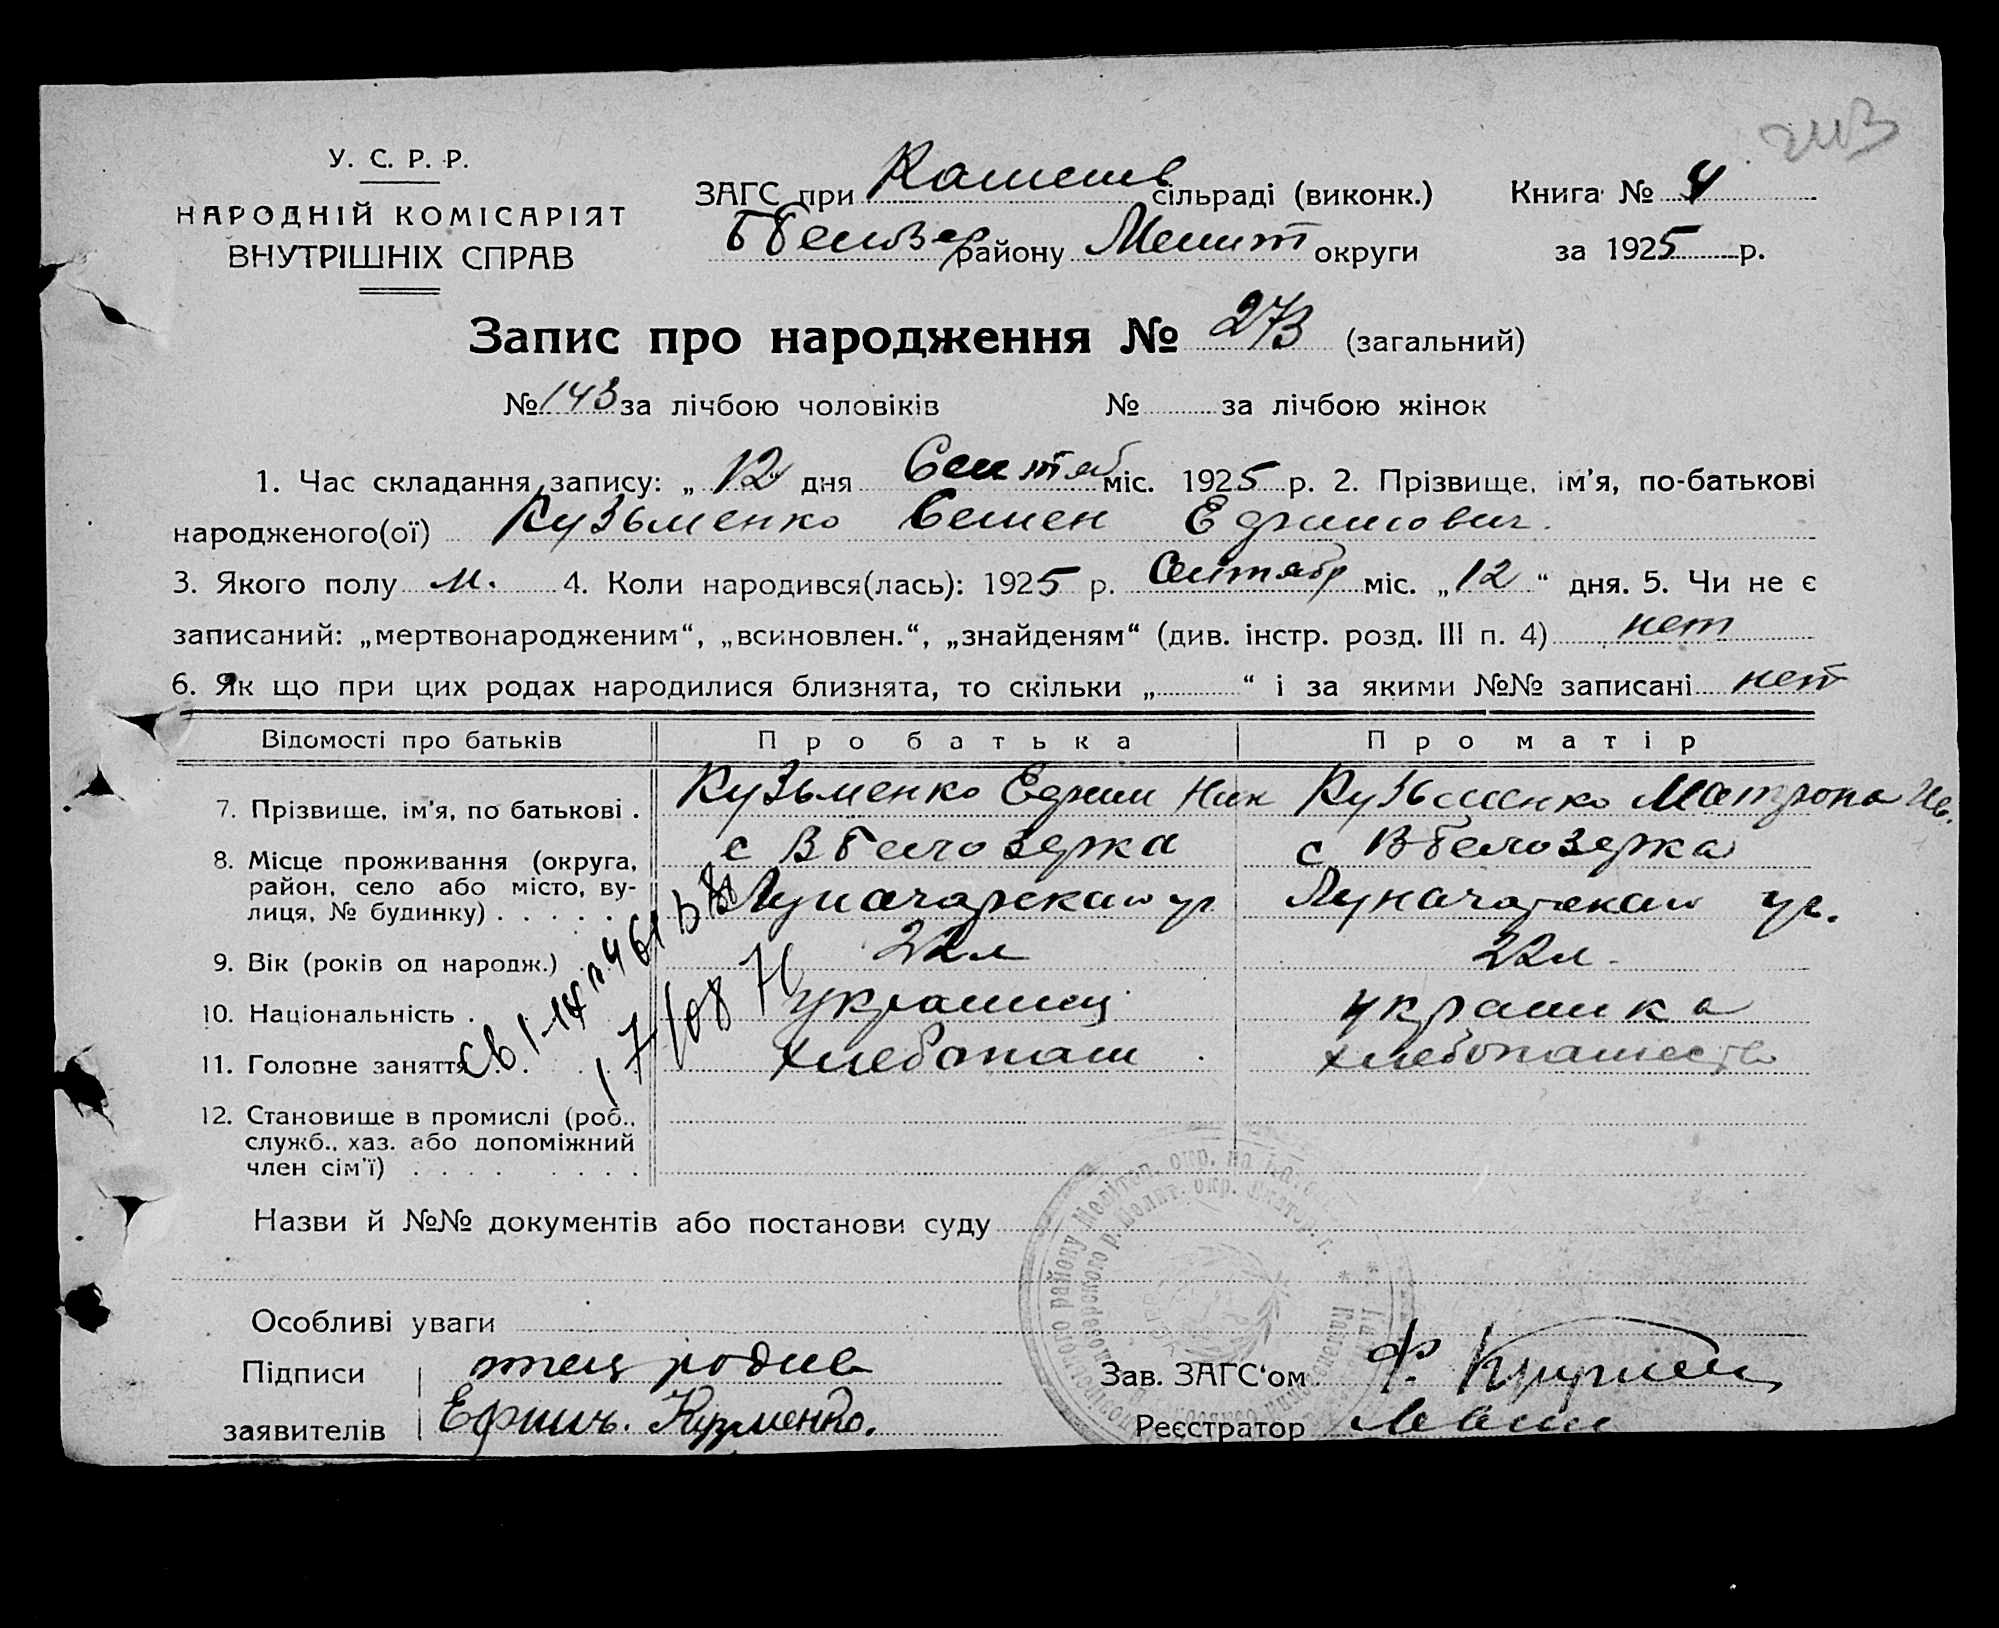 У. С. Р. Р.
НАРОДНІЙ КОМІСАРІЯТ
ВНУТРІШНІХ СПРАВ
ЗАГС при сільраді (виконк.)
району Мелит округи
Книга № 4
за 1925 р.
Запис про народження № 273 (загальний)
№ 143 за лічбою чоловіків № за лічбою жінок
1. Час складання запису: „12“ дня Сентяб міс. 1925 р. 2. Прізвище, ім’я, по-батькові
народженого(ої) Кузьменко Семен Ефимович.
3. Якого полу м. 4. Коли народився(лась): 1925 р. Сентябр міс. „12“ дня. 5. Чи не є
записаний: „мертвонародженим“, „всиновлен.“, „знайденям“ (див. інстр. розд. III п. 4) нет
6. Як що при цих родах народилися близнята, то скільки „ “ і за якими №№ записані нет
Відомості про батьків Про батька Про матір
7. Прізвище, ім’я, по батькові . Кузьменко Ефим Ник Кузьменко Матрона Ив.
8. Місце проживання (округа, с В Белозерка с В Белозерка
район, село або місто, ву-
лиця, № будинку) . . . . . Луначарская ул Луначарская ул.
9. Вік (років од народж.) . 22 л 22 л.
10. Національність . украинец украинка
11. Головне заняття . . . хлебопаш . хлебопашество
12. Становище в промислі (роб.,
служб., хаз. або допоміжний
член сім’ї) . . . . . . . . .
Назви й №№ документів або постанови суду
Особливі уваги
Підписи
заявителів Ефимъ. Кузменко.
Зав. ЗАГС‘ом Ф.
Реєстратор